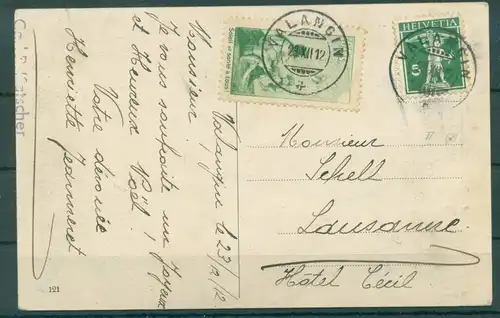 Valangin le 23/12/12
Monsieur!
Je vous souhaite un Joyeux
et Heureux Noël!
Votre dévouée
Henriette Jeanneret
VALANGIN
23.XII.12
HELVETIA
5
VALANGIN
Monsieur
Schell
Lausanne
Hotel Cécil
121